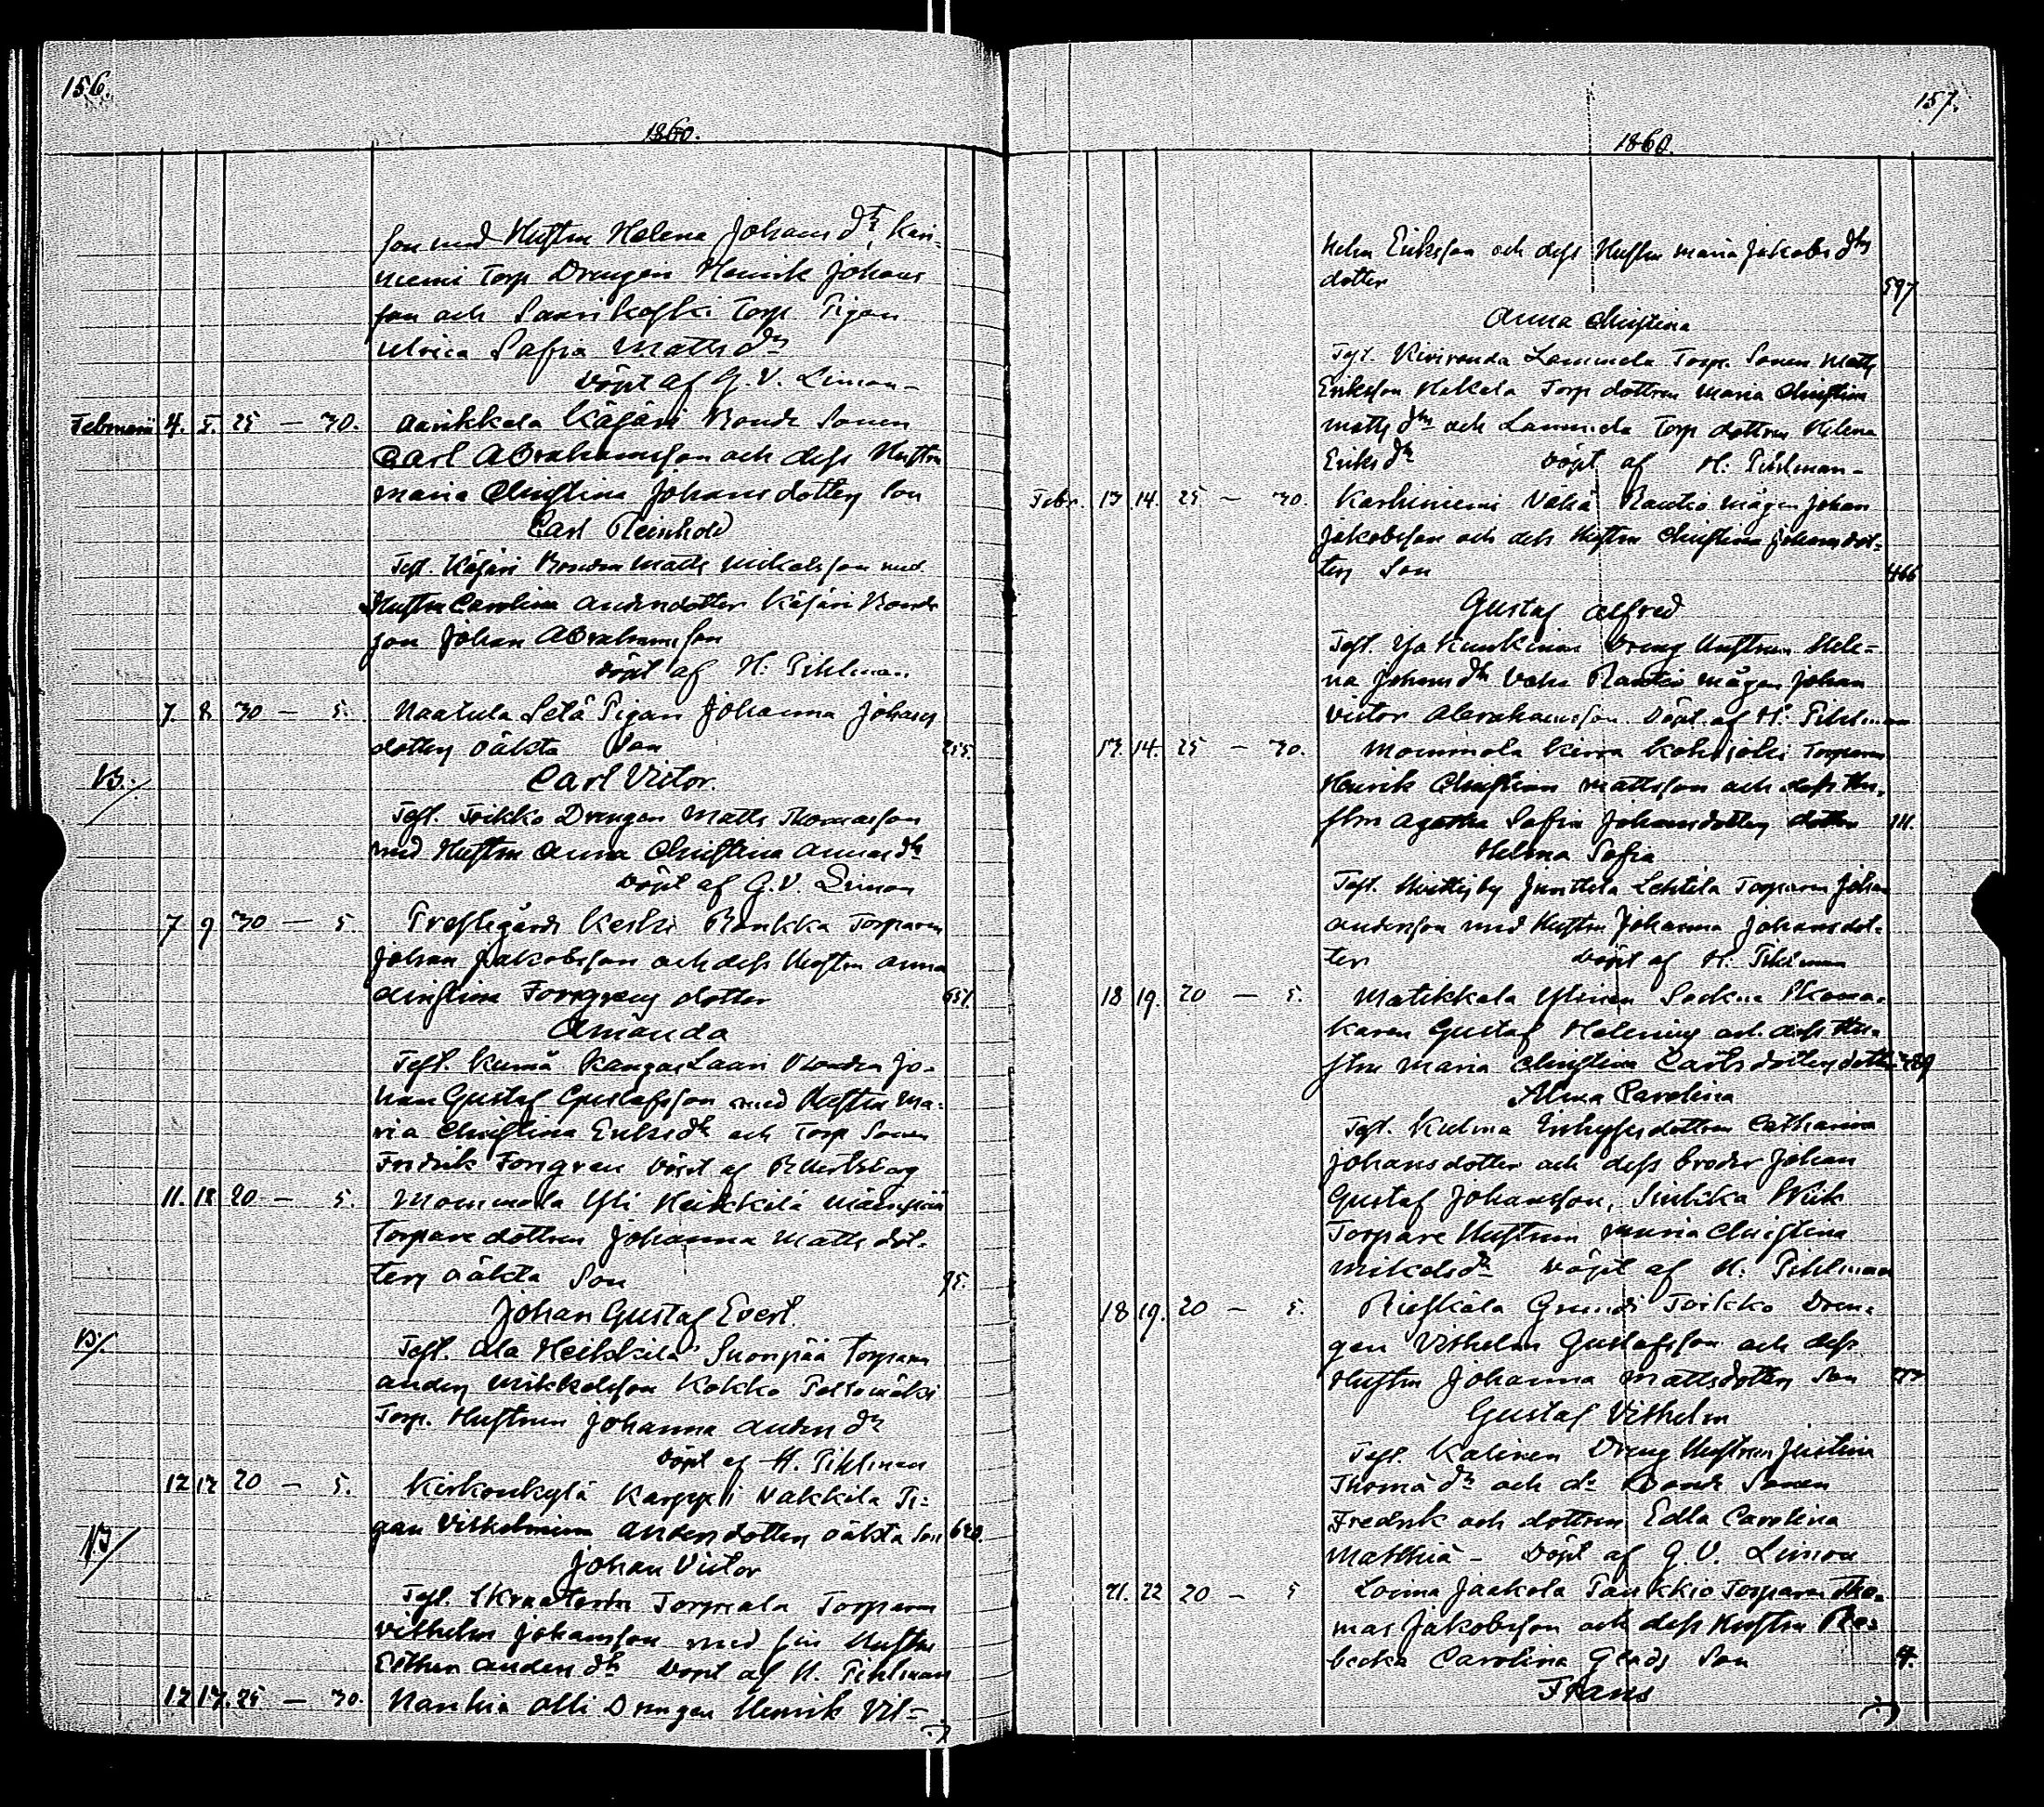 156.
1860.
son med Hustru Helena Johans dtr, Kari-
niemi Torp Drengen Henrik Johans
son och Saarikoski Torp Pigan
Ulrica Safia Matts dr
Döpt af G. V. Limon-
Februarii 4. 5. 25 — 30. Aarikkala Käjäri Bonde Sonen
Carl Abrahamsson och dess Hustru
Maria Christina Johans dotters Son
Carl Reinhold
Test. Käjäri Bonden Matts Mikelsson med
Hustru Carolina Andersdotter Käjäri Bonde
son Johan Abrahamsson
Döpt af H: Pihlman
7. 8 30 — 5. Naatula Setä Pigan Johanna Johans
dotters oäkta Son 255.
Carl Victor.
Test. Toikko Drengen Matts Thomasson
med Hustru Anna Christina Annas dr
Döpt af G. V. Limon
7 9 30 — 5. Prestegårds Keski Rankka Torparen
Johan Jakobsson och dess Hustru Anna
Christina Forsgrens dotter 651.
Amanda
Test. Kumä Kangas Laari Bonden Jo-
han Gustaf Gustafsson med Hustru Ma-
ria Christina Eriks dr och Torp Sonen
Fredrik Forsgren Döpt af
11. 12 20 — 5. Mommola Yli Heikkilä Mäenpää
Torpare dottren Johanna Matts dot-
ters oäkta Son 95.
Johan Gustaf Evert.
Test. Ala Heikkilä Suonpää Torparen
Anders Mikkelsson Kokko
Torp. Hustrun Johanna Anders dr
Döpt af H. Pihlman
12 12 20 — 5. Kirkonkylä Karppi Vakkila Pi-
gan Vilhelmina Anders dotters oäkta Son 620.
Johan Victor
Test. Torpparen
Vilhelm Johansson med sin Hustru
Esther Anders dr Döpt af H. Pihlman
12 12. 25 — 30. Nanhia Olli Drengen Henrik Vil-
157.
1860.
helm Eriksson och dess Hustru Maria Jakobs dtrs
dotter 597
Anna Christina
Test. Lammela Torp. Sonen Matts
Eriksson Hakala Torp dottren Maria Christina
Matts dr och Lammela Torp dottren Helena
Eriks dr Döpt af H: Pihlman-
Febr. 13 14. 25 — 30. Karhiniemi Vähä Rautio Mågen Johan
Jakobsson och dess Hustru Christina Johans dot-
ters Son 466
Gustaf Alfred
Test. Dreng Hustrun Hele-
na Johans dr Vähä Rautio Mågen Johan
Victor Abrahamsson. Döpt af H: Pihlman
13. 14. 25 — 30. Mommola Kirra Kohisoki Torparen
Henrik Christian Mattsson och dess Hu-
stru Agatha Safia Johans dotters dotter 111.
Helma Safia
Test. Huittisby Junttila Lehtilä Torparen Johan
Andersson med Hustru Johanna Johans dot-
ter Döpt af H. Pihlman
18 19. 20 — 5. Matikkala Ylinen Sockne Skoma-
karen Gustaf Helenius och dess Hu-
stru Maria Christina Carls dotters dotter
Alma Carolina
Test. Kulma Catharina
Johansdotter och dess broder Johan
Gustaf Johansson, Sinkka Wiik
Torpare Hustrun Maria Christina
Mikels dr Döpt af H: Pihlman
18 19. 20 — 5. Rieskala Grundi Toikko Dren-
gen Vilhelm Gustafsson och dess
Hustru Johanna Matts dotters Son
Gustaf Vilhelm
Test. Kalinen Dreng Hustrun Justina
Thomä dr och do Bonde Sonen
Fredrik och dottren Edla Carolina
Matthiä - Döpt af G. V. Limon
21. 22 20 — 5 Loima Jaakola Paukkio Torparen Tho-
mas Jakobsson och dess Hustru Re-
becka Carolina Glads Son 4.
Frans